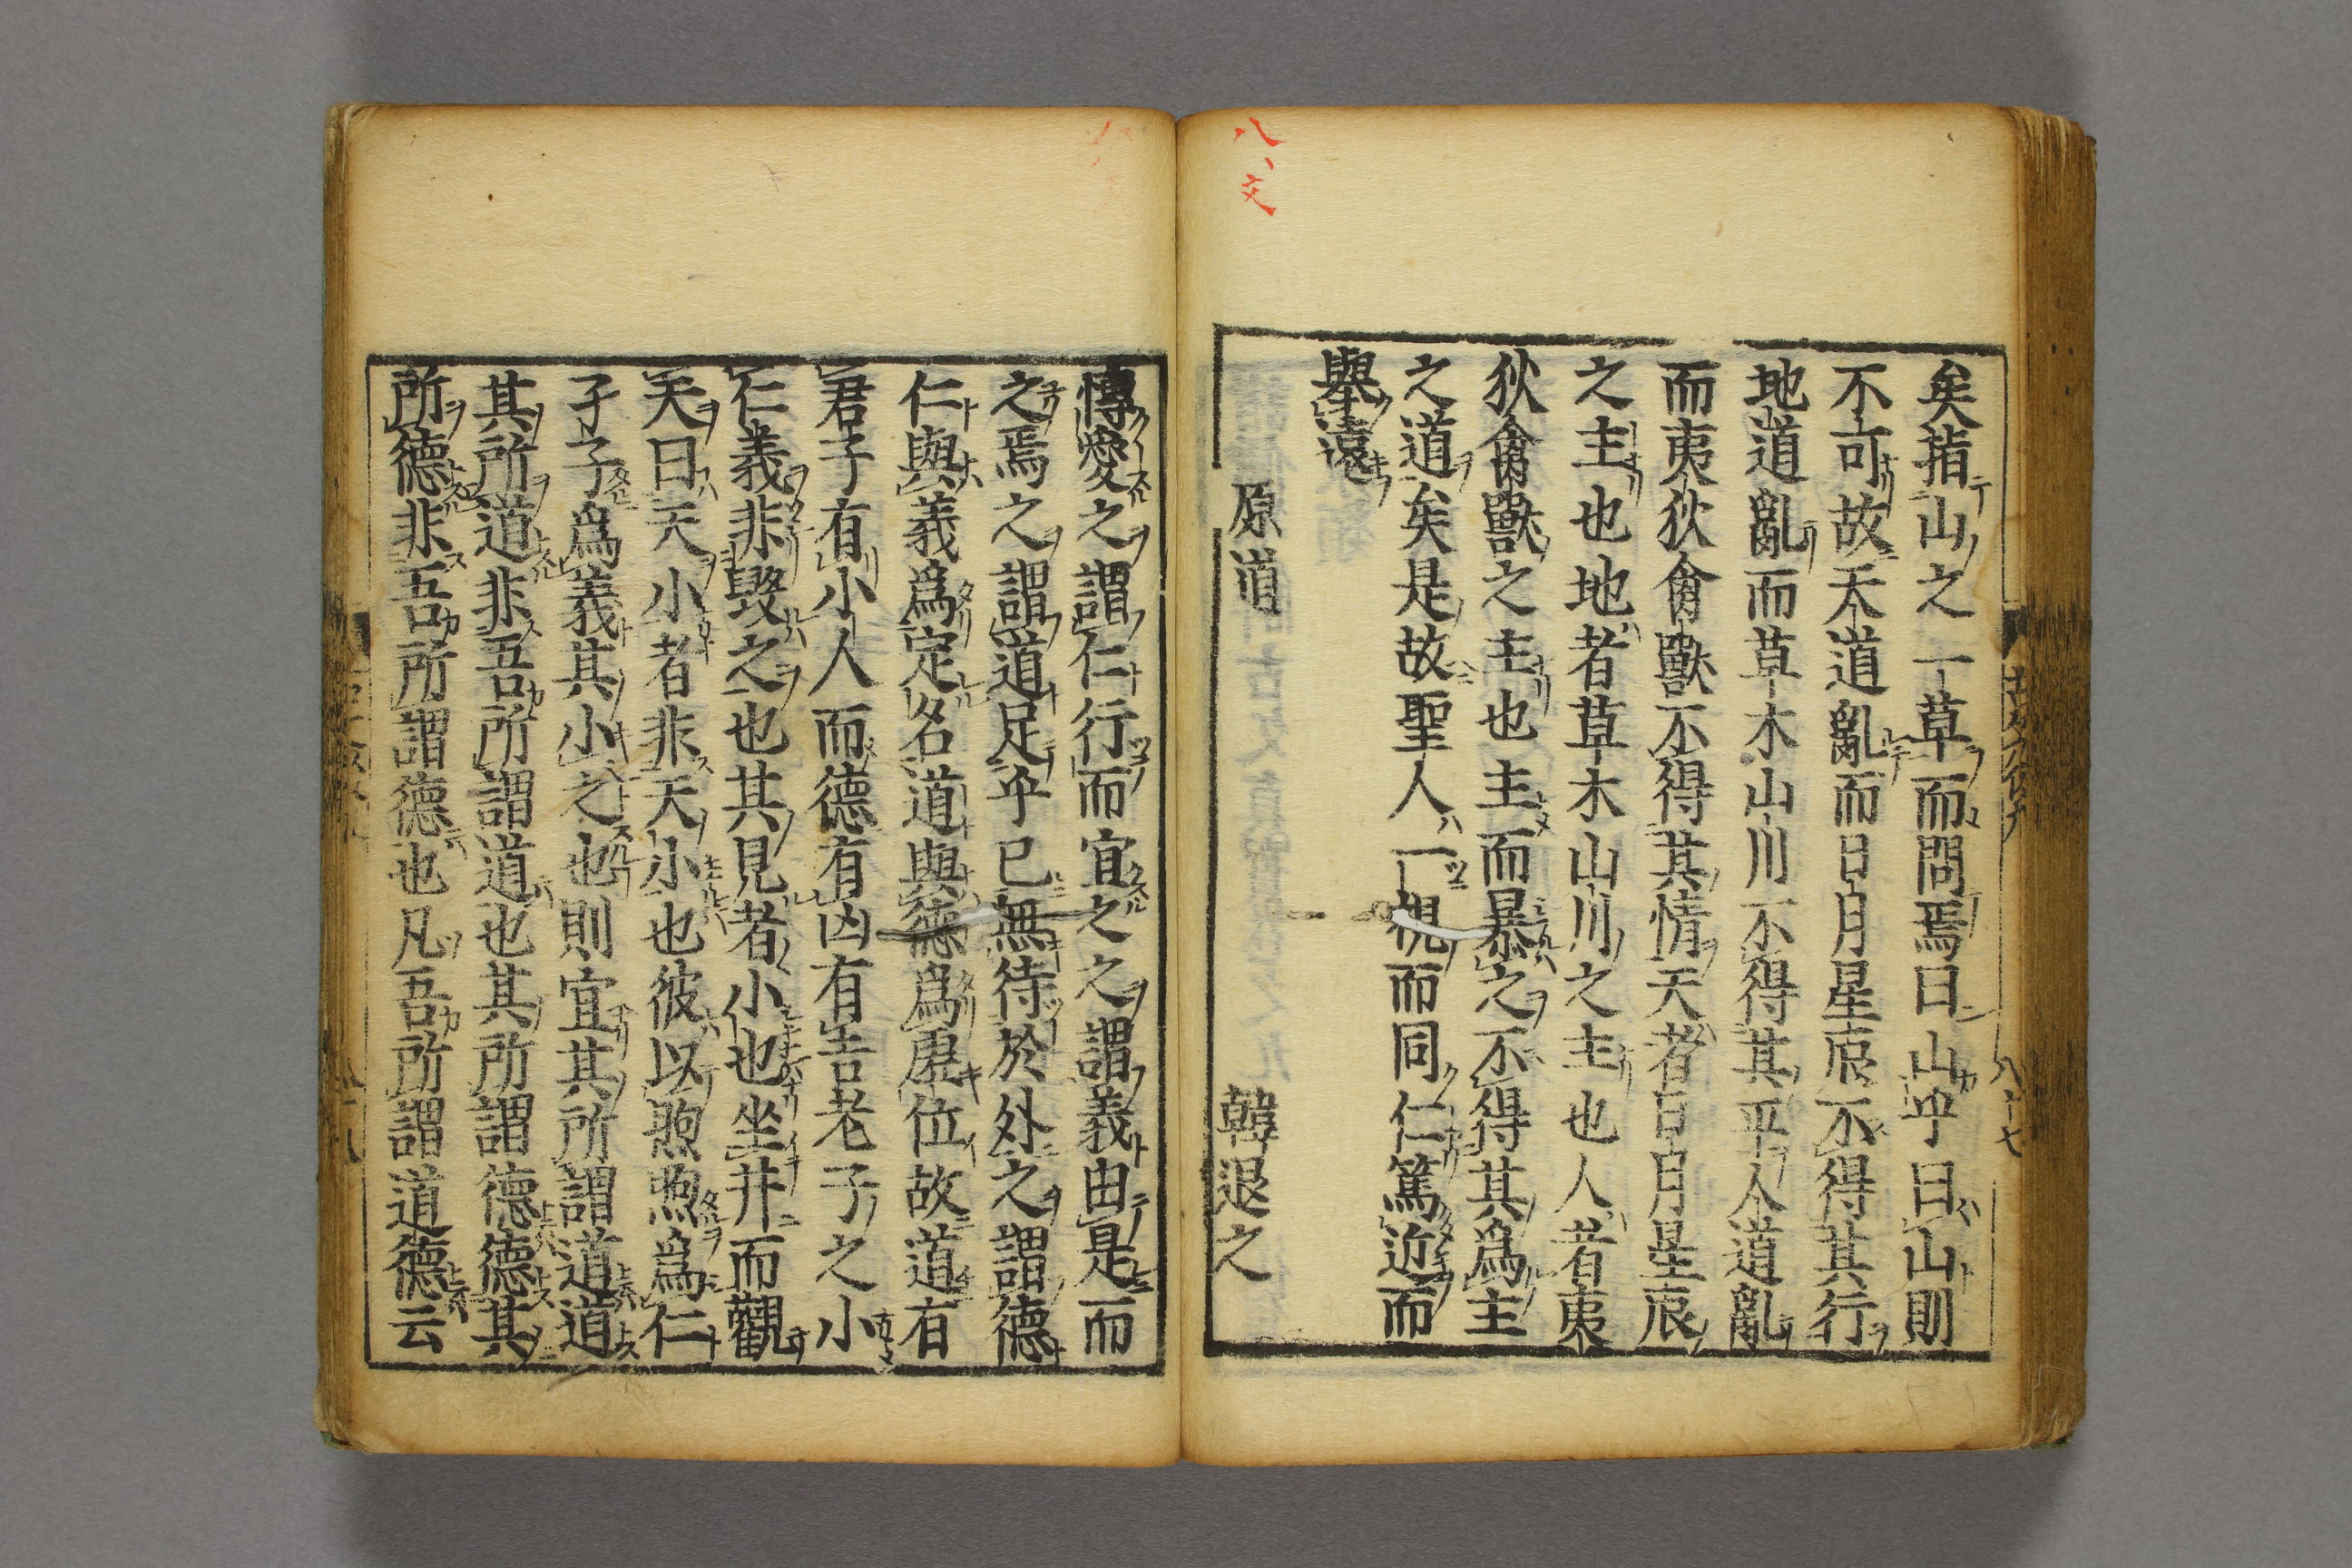 八、文
矣指山之一草而問焉曰山乎曰山則
不可故天道亂而日月星辰不得其行
地道亂而草木山川不得其平人道亂
而夷狄禽獸不得其情天者日月星辰
之主也地者草木山川之主也人者夷
狄禽獸之主也主而暴之不得其爲主
之道矣是故聖人一視而同仁篤近而
舉遠
原道 韓退之
博愛之謂仁行而宜之之謂義由是而
之焉之謂道足乎已無待於外之謂德
仁與義爲定名道與德爲虛位故道有
君子有小人而德有凶有吉老子之小
仁義非毀之也其見者小也坐井而觀
天曰天小者非天小也彼以煦煦爲仁
孑孑爲義其小之也則宜其所謂道道
其所道非吾所謂道也其所謂德德其
所德非吾所謂德也凡吾所謂道德云